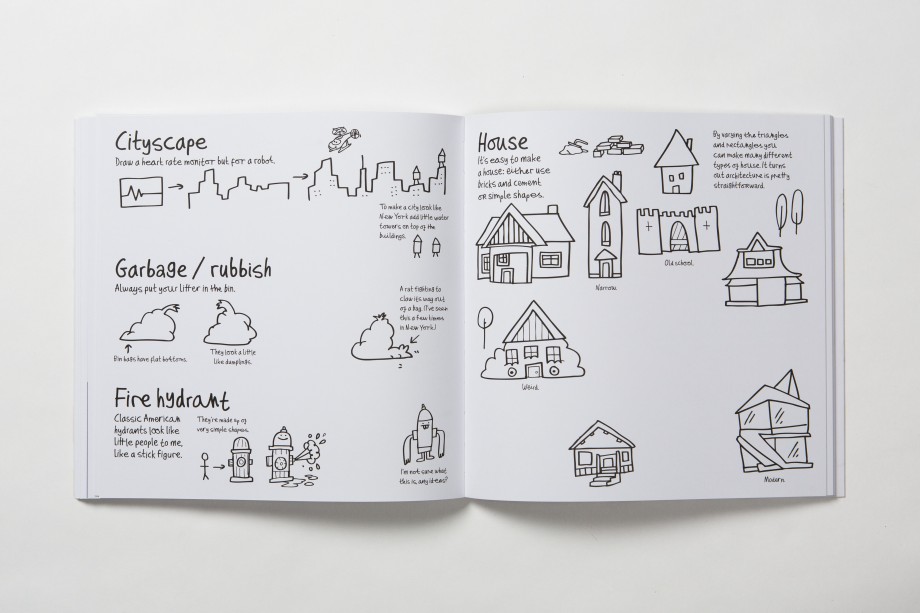 Cityscape
Draw a heart rate monitor but for a robot.
To make a city look like
New York add little water
towers on top of the
buildings.
Garbage / rubbish
Always put your litter in the bin.
Bin bags have flat bottoms.
They look a little
like dumplings.
A rat fighting to
claw its way out
of a bag. (I've seen
this a few times
in New York!
Fire hydrant
Classic American
hydrants look like
little people to me,
like a stick figure.
They're made up of
very simple shapes.
I'm not sure what
this is, any ideas?
House
It's easy to make
a house: either use
bricks and cement
or simple shapes.
By varying the triangles
and rectangles you
can make many different
types of house. It turns
out architecture is pretty
straightforward.
Narrow.
Old school.
Weird.
Modern.